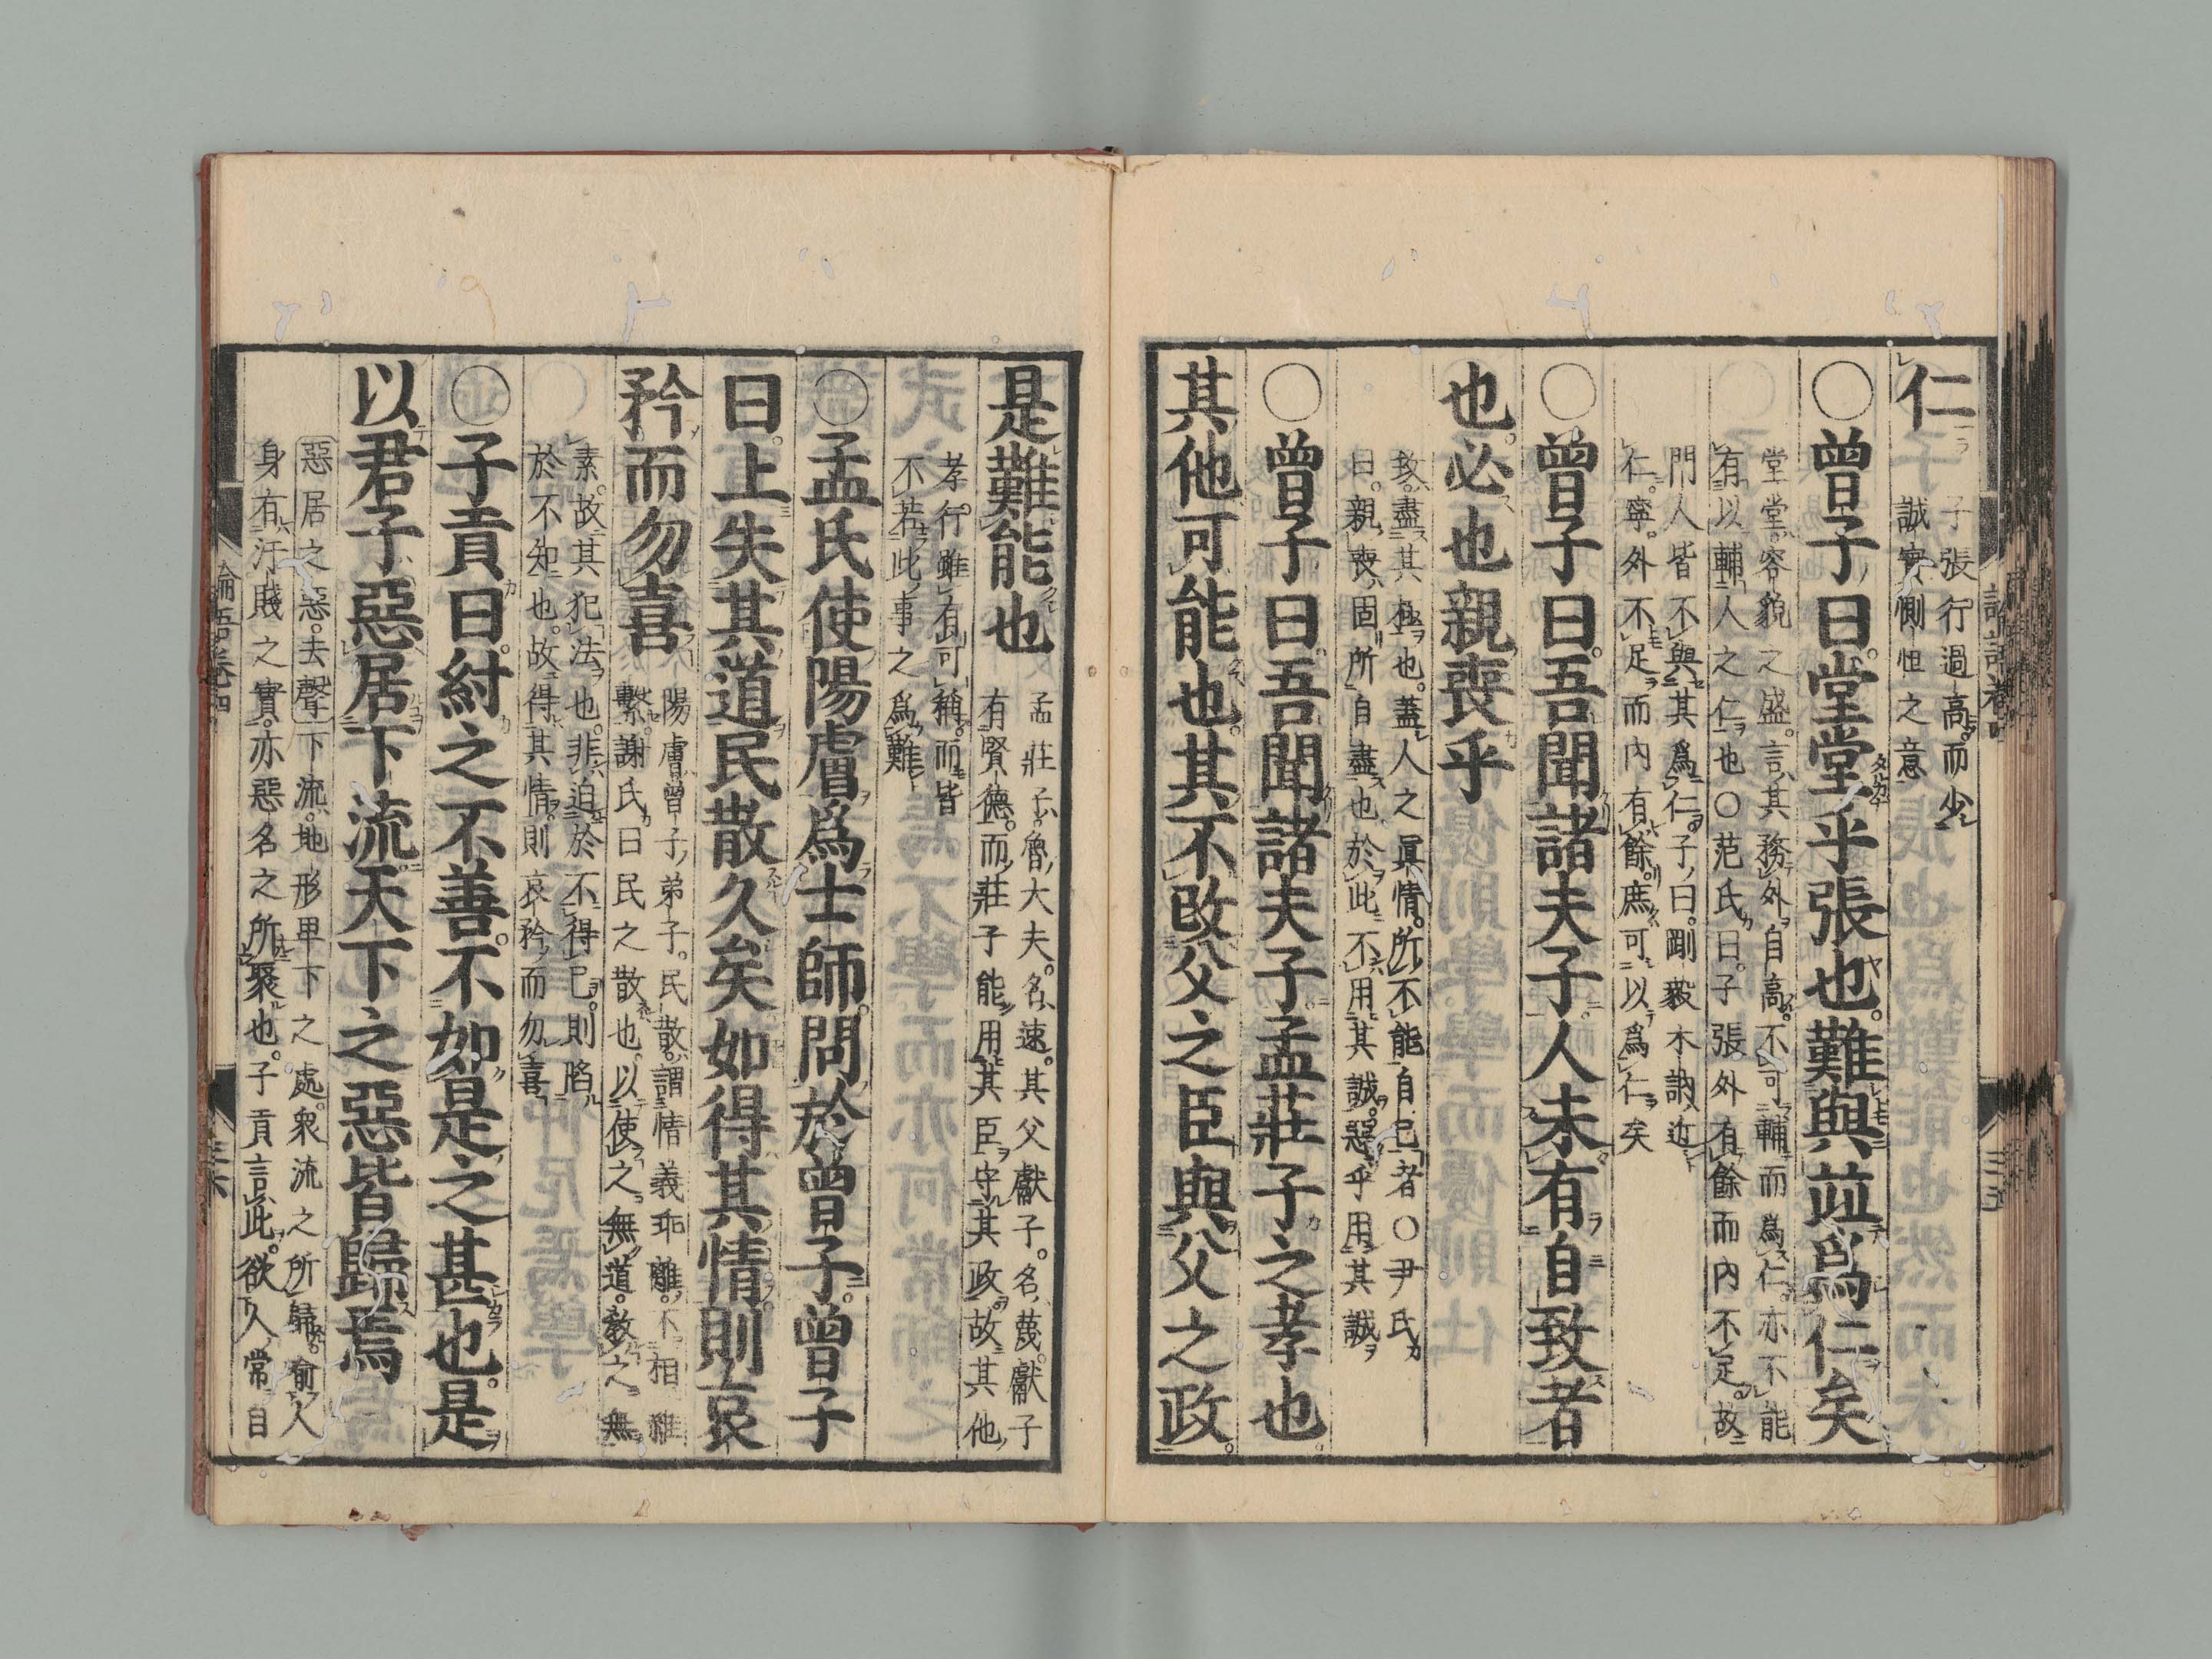 仁
子張行過高而少
誠實惻怛之意
○曾子曰堂堂乎張也難與並爲仁矣
堂堂容貌之盛言其務外自高不可輔而爲仁亦不能
有以輔人之仁也○范氏曰子張外有餘而内不足故
門人皆不與其爲仁子曰剛毅木訥近
仁寧外不足而内有餘庶可以爲仁矣
○曾子曰吾聞諸夫子人未有自致者
也必也親喪乎
致盡其極也蓋人之眞情所不能自已者○尹氏
曰親喪固所自盡也於此不用其誠惡乎用其誠
○曾子曰吾聞諸夫子孟莊子之孝也
其他可能也其不改父之臣與父之政
是難能也
孟莊子魯大夫名速其父獻子名蔑獻子
有賢德而莊子能用其臣守其政故其他
孝行雖有可稱而皆
不若此事之爲難
○孟氏使陽膚爲士師問於曾子曾子
曰上失其道民散久矣如得其情則哀
矜而勿喜
陽膚曾子弟子民散謂情義乖離不相維
繫謝氏曰民之散也以使之無道敎之無
素故其犯法也非迫於不得已則陷
於不知也故得其情則哀矜而勿喜
○子貢曰紂之不善不如是之甚也是
以君子惡居下流天下之惡皆歸焉
惡居之惡去聲下流地形卑下之處衆流之所歸喻人
身有汙賤之實亦惡名之所聚也子貢言此欲人常自
論語卷四
三六